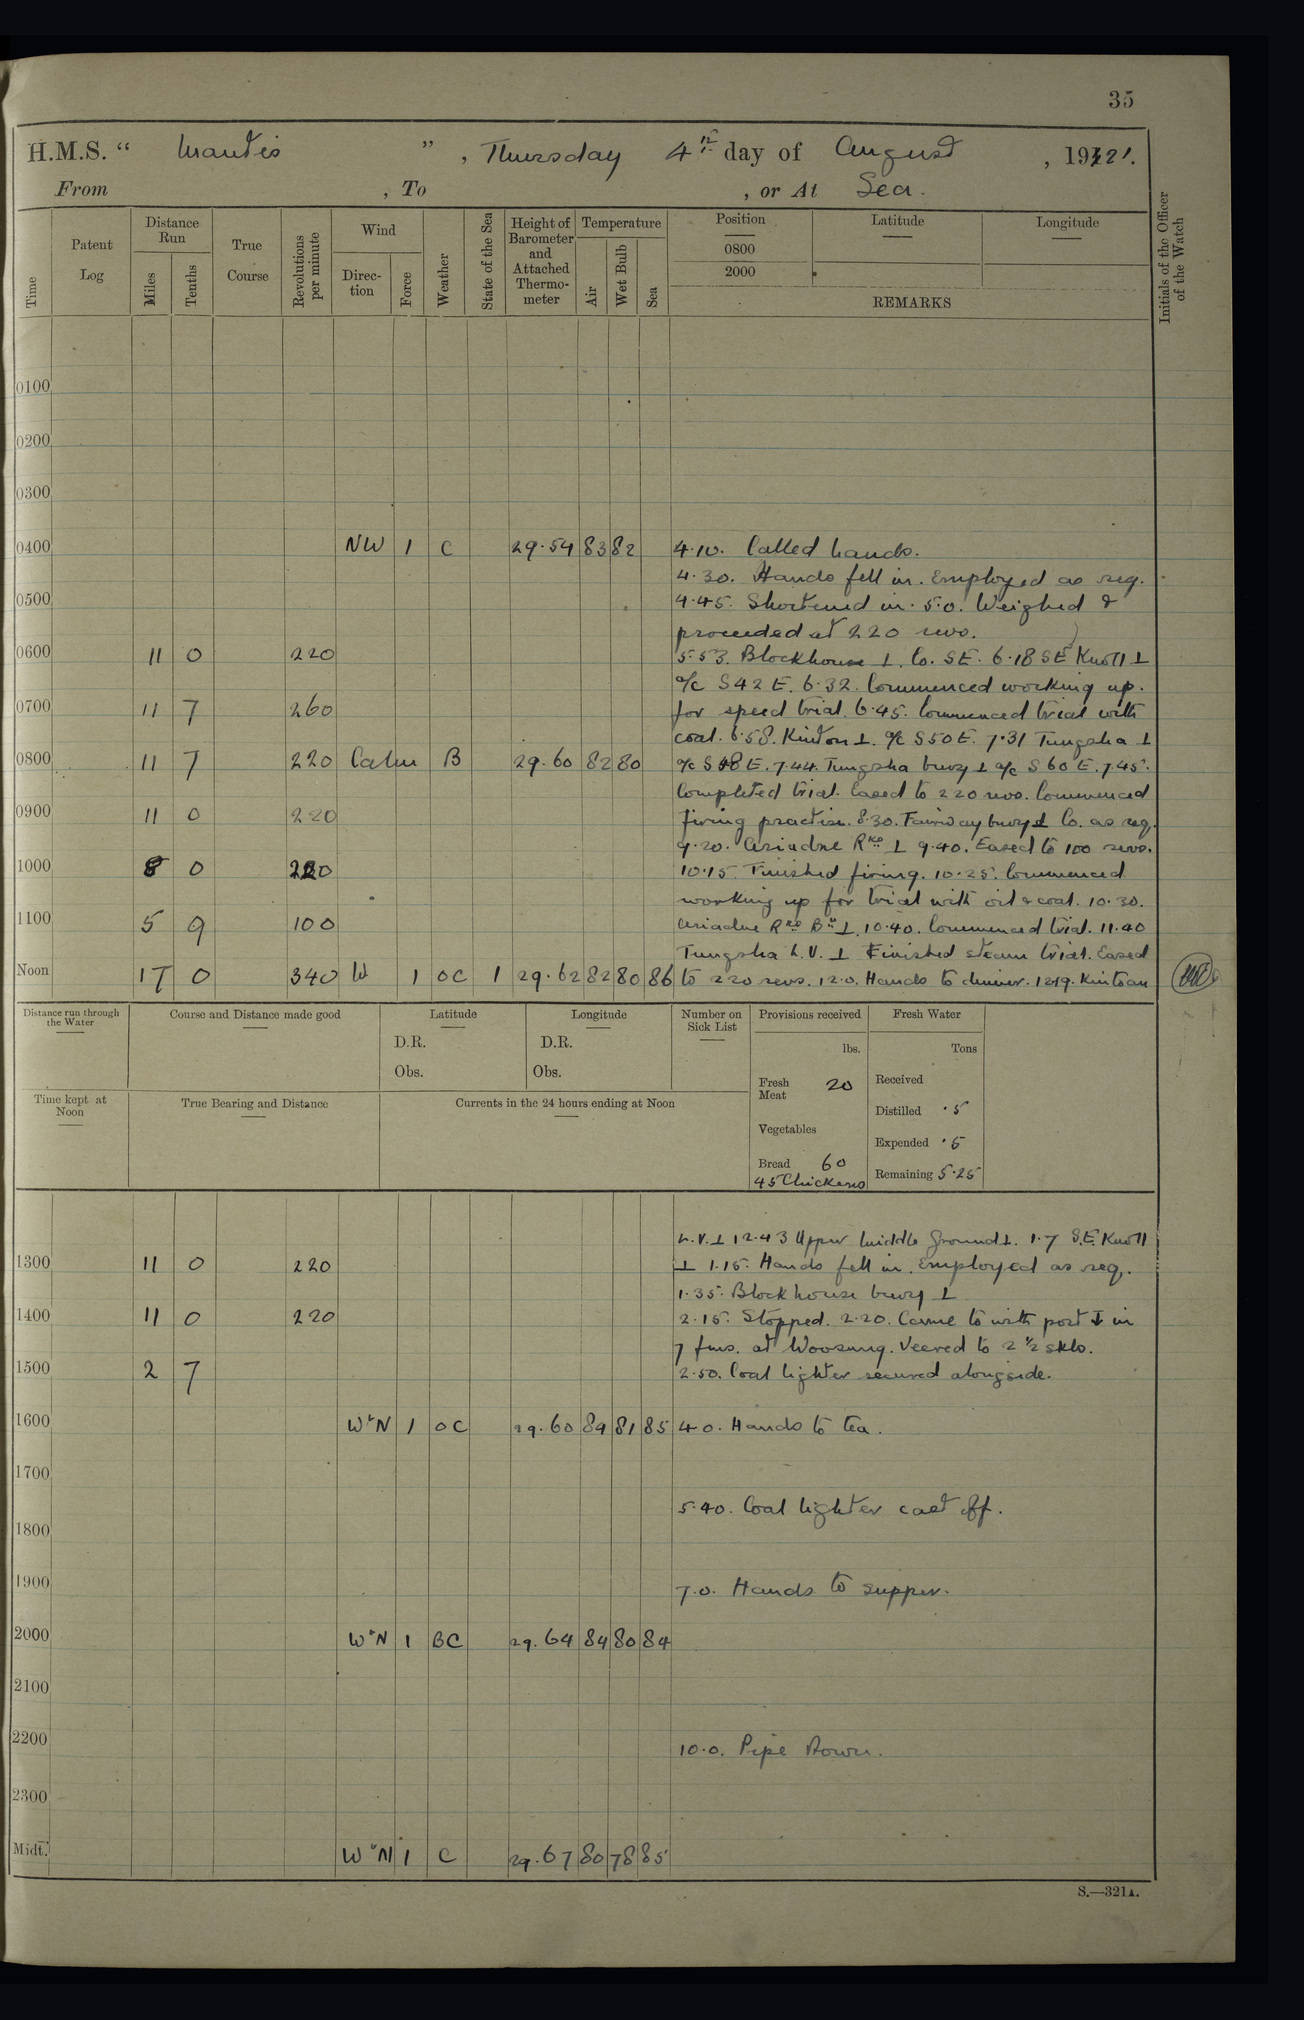 35
H.M.S. " Mantis " , Thursday 4th day of August , 1921.
From , To , or At Sea.
Time
Patent Log
Distance Run
Miles
Tenths
True Course
Revolutions per minute
Wind
Direction
Force
Weather
State of the Sea
Height of Barometer and Attached Thermometer
Temperature
Air
Wet Bulb
Sea
Position
0800
2000
Latitude
Longitude
REMARKS
Initials of the Officer of the Watch
0100
0200
0300
0400 NW 1 C 29.54 83 82 4.10. Called hands.
4.30. Hands fell in. Employed as req.
0500 4.45. Shortened in. 5.0. Weighed &
proceeded at 220 revs.
0600 11 0 220 5.53. Blockhouse ⊥. Co. SE. 6.18 SE Knoll ⊥
a/c S42E. 6.32. Commenced working up.
0700 11 7 260 for speed trial. 6.45. Commenced trial with
coal. 6.58. Kintoan ⊥. a/c S50E. 7.31 Tungsha ⊥
0800 11 7 220 Calm B 29.60 82 80 a/c S48E. 7.44. Tungsha buoy ⊥ a/c S60E. 7.45.
Completed trial. Eased to 220 revs. Commenced
0900 11 0 220 firing practise. 8.30. Fairway buoy ⊥ Co. as req.
9.20. Ariadne Rks ⊥ 9.40. Eased to 100 revs.
1000 8 0 220 10.15. Finished firing. 10.25. Commenced
working up for trial with oil & coal. 10.30.
1100 5 9 100 Ariadne Rks By ⊥. 10.40. Commenced trial. 11.40
Tungsha L.V. ⊥ Finished steam trial. Eased
Noon 17 0 340 W 1 OC 1 29.62 82 80 86 to 220 revs. 12.0. Hands to dinner. 12.19. Kintoan
Distance run through the Water
Course and Distance made good
Latitude
D.R.
Obs.
Longitude
D.R.
Obs.
Number on Sick List
Provisions received
lbs.
Fresh Meat 20
Vegetables
Bread 60
45 Chickens
Fresh Water
Tons
Received
Distilled .5
Expended .5
Remaining 5.25
Time kept at Noon
True Bearing and Distance
Currents in the 24 hours ending at Noon
L.V. ⊥ 12.43 Upper Middle Ground ⊥. 1.7 S.E. Knoll
1300 11 0 220 ⊥ 1.15. Hands fell in. Employed as req.
1.35. Blockhouse buoy ⊥
1400 11 0 220 2.15. Stopped. 2.20. Came to with port ⚓ in
7 fms. at Woosung. Veered to 2 ½ skls.
1500 2 7 2.50. Coal lighter secured alongside.
1600 W'N 1 OC 29.60 89 81 85 4.0. Hands to tea.
1700
5.40. Coal lighter cast off.
1800
1900 7.0. Hands to supper.
2000 W'N 1 BC 29.64 84 80 84
2100
2200 10.0. Pipe Down.
2300
Midt. W'N 1 C 29.67 80 78 85
S.—321A.